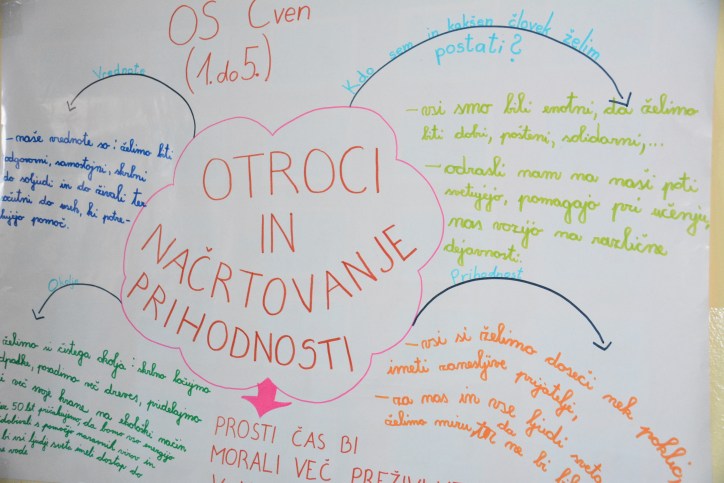 OŠ Cven
(1. do 5.)
Vrednote
– naše vrednote so: želimo biti
odgovorni, samostojni, skrbni
do soljudi in do živali ter
čutni do vseh, ki potre-
bujejo pomoč.
Kdo sem in kakšen človek želim
postati?
– vsi smo bili enotni, da želimo
biti dobri, pošteni, solidarni,...
– odrasli nam na naši poti
svetujejo, pomagajo pri učenju,
nas vozijo na različne
dejavnosti.
OTROCI
IN
NAČRTOVANJE
PRIHODNOSTI
Okolje
želimo si čistega okolja: skrbno ločujemo
odpadke, posadimo več dreves, pridelajmo
več svoje hrane na ekološki način
50 let pričakujemo, da bomo vso energijo
dobivali s pomočjo naravnih virov in
bi vsi ljudje sveta imeli dostop do
vode
Prihodnost
– vsi si želimo doseči nek poklic,
imeti zanesljive prijatelje,
– za nas in vse ljudi sveta
želimo miru, da ne bi bil
PROSTI ČAS BI
MORALI VEČ PREŽIVLJ